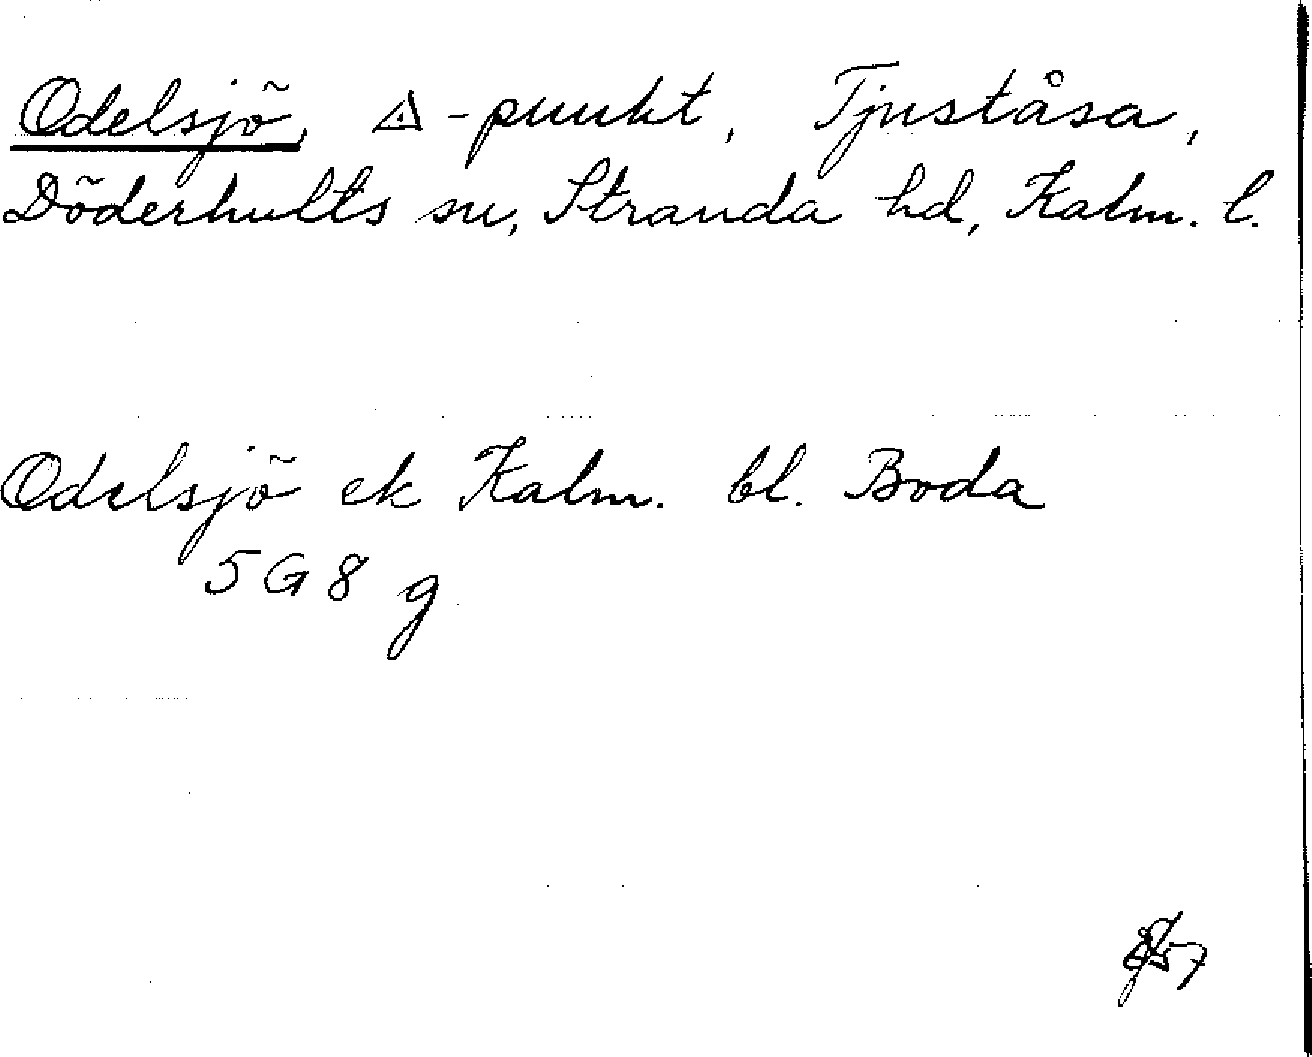 Odelsjö, △-punkt, Tjuståsa,
Döderhults sn, Stranda hd, Kalm. l.
Odelsjö ek Kalm. bl. Boda
5 G 8 g